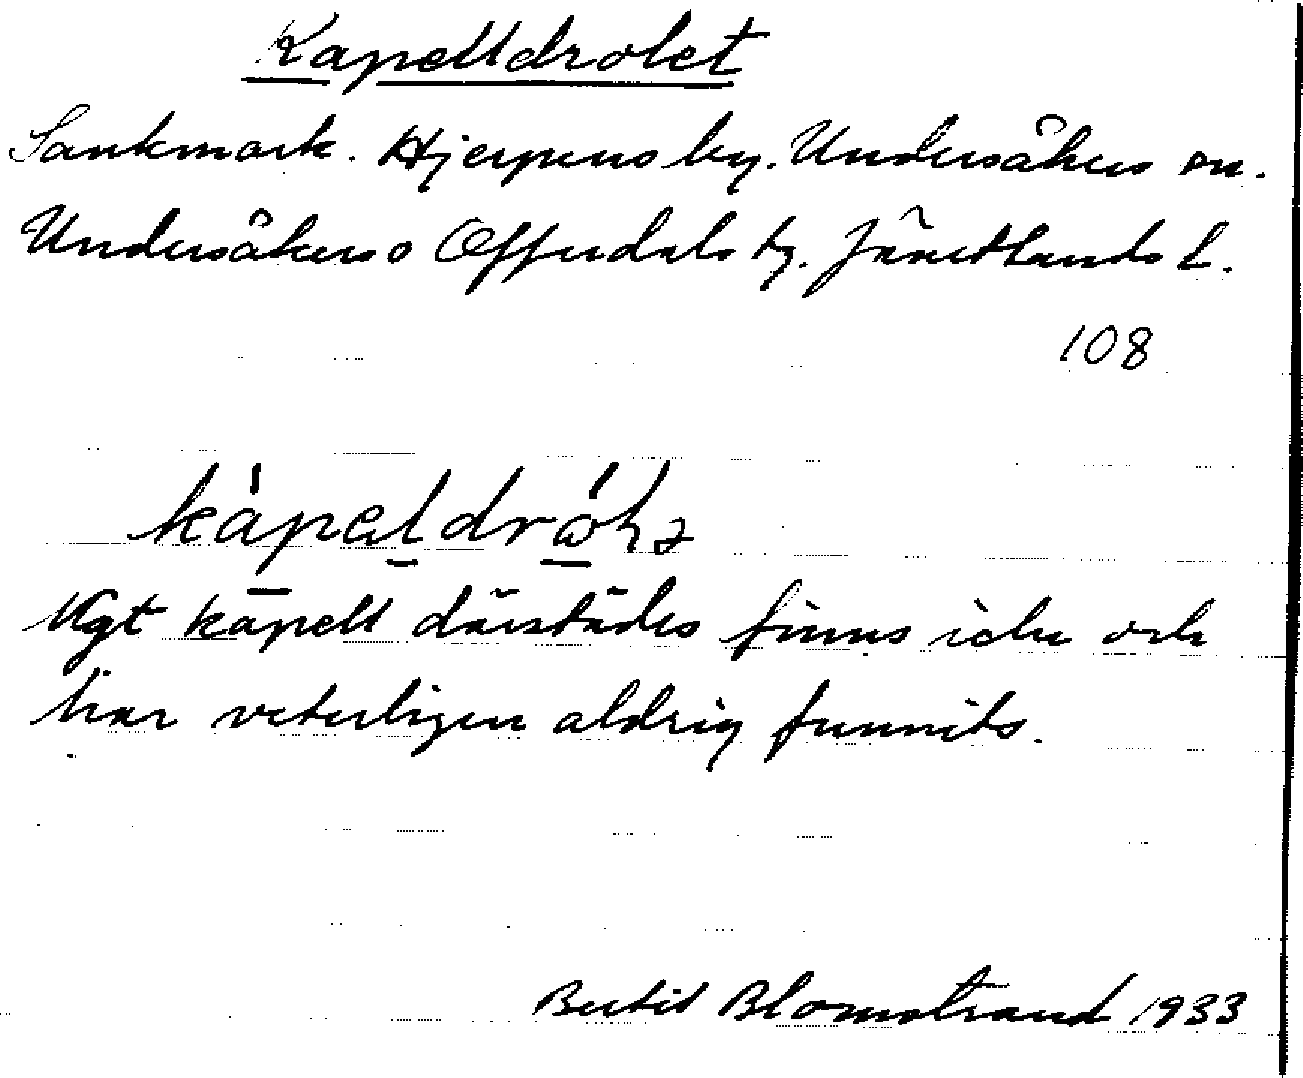 Kapelldrolet
Sankmark. Hjerpens by. Undersåkers sn.
Undersåkers o Offerdals tg. Jämtlands L.
108
Ngt kapell därstädes finns icke och
har veterligen aldrig funnits.
Bertil Blomstrand 1933